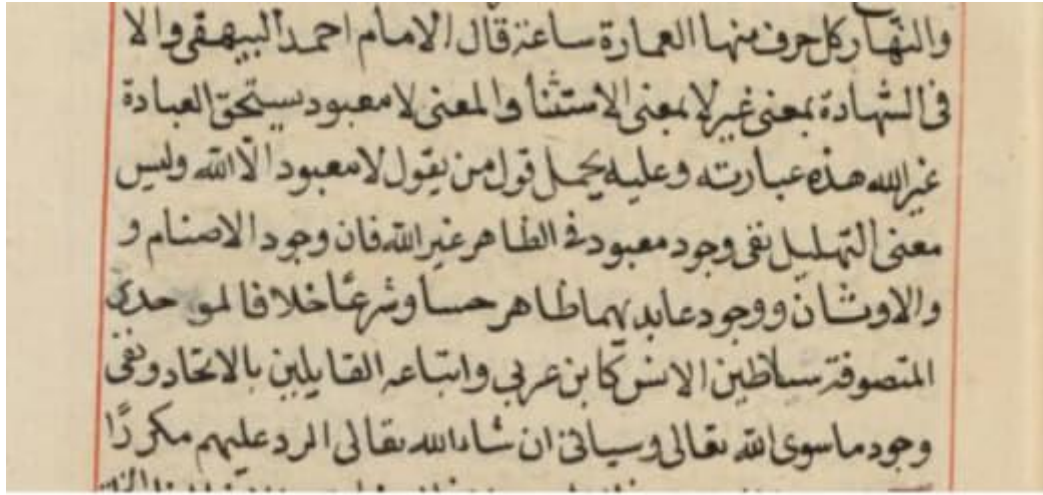 والنهار كل حرف منها العمارة ساعة قال الامام احمد البيهقى والا
فى الشهادة بمعنى غير لا بمعنى الاستثنا والمعنى لا معبود يستحق العبادة
غير الله هذه عبارته وعليه يحمل قول من يقول لا معبود الّا الله وليس
معنى التهليل نفى وجود معبود فى الظاهر غير الله فان وجود الاصنام و
والاوثان ووجود عابديهما ظاهر حسا وشرعًا خلافا لموحدى
المتصوفة سياطين الانس كابن عربي واتباعه القايلين بالاتحاد ونفى
وجود ما سوى الله تعالى وسياتى ان شاء الله تعالى الرد عليهم مكررًا